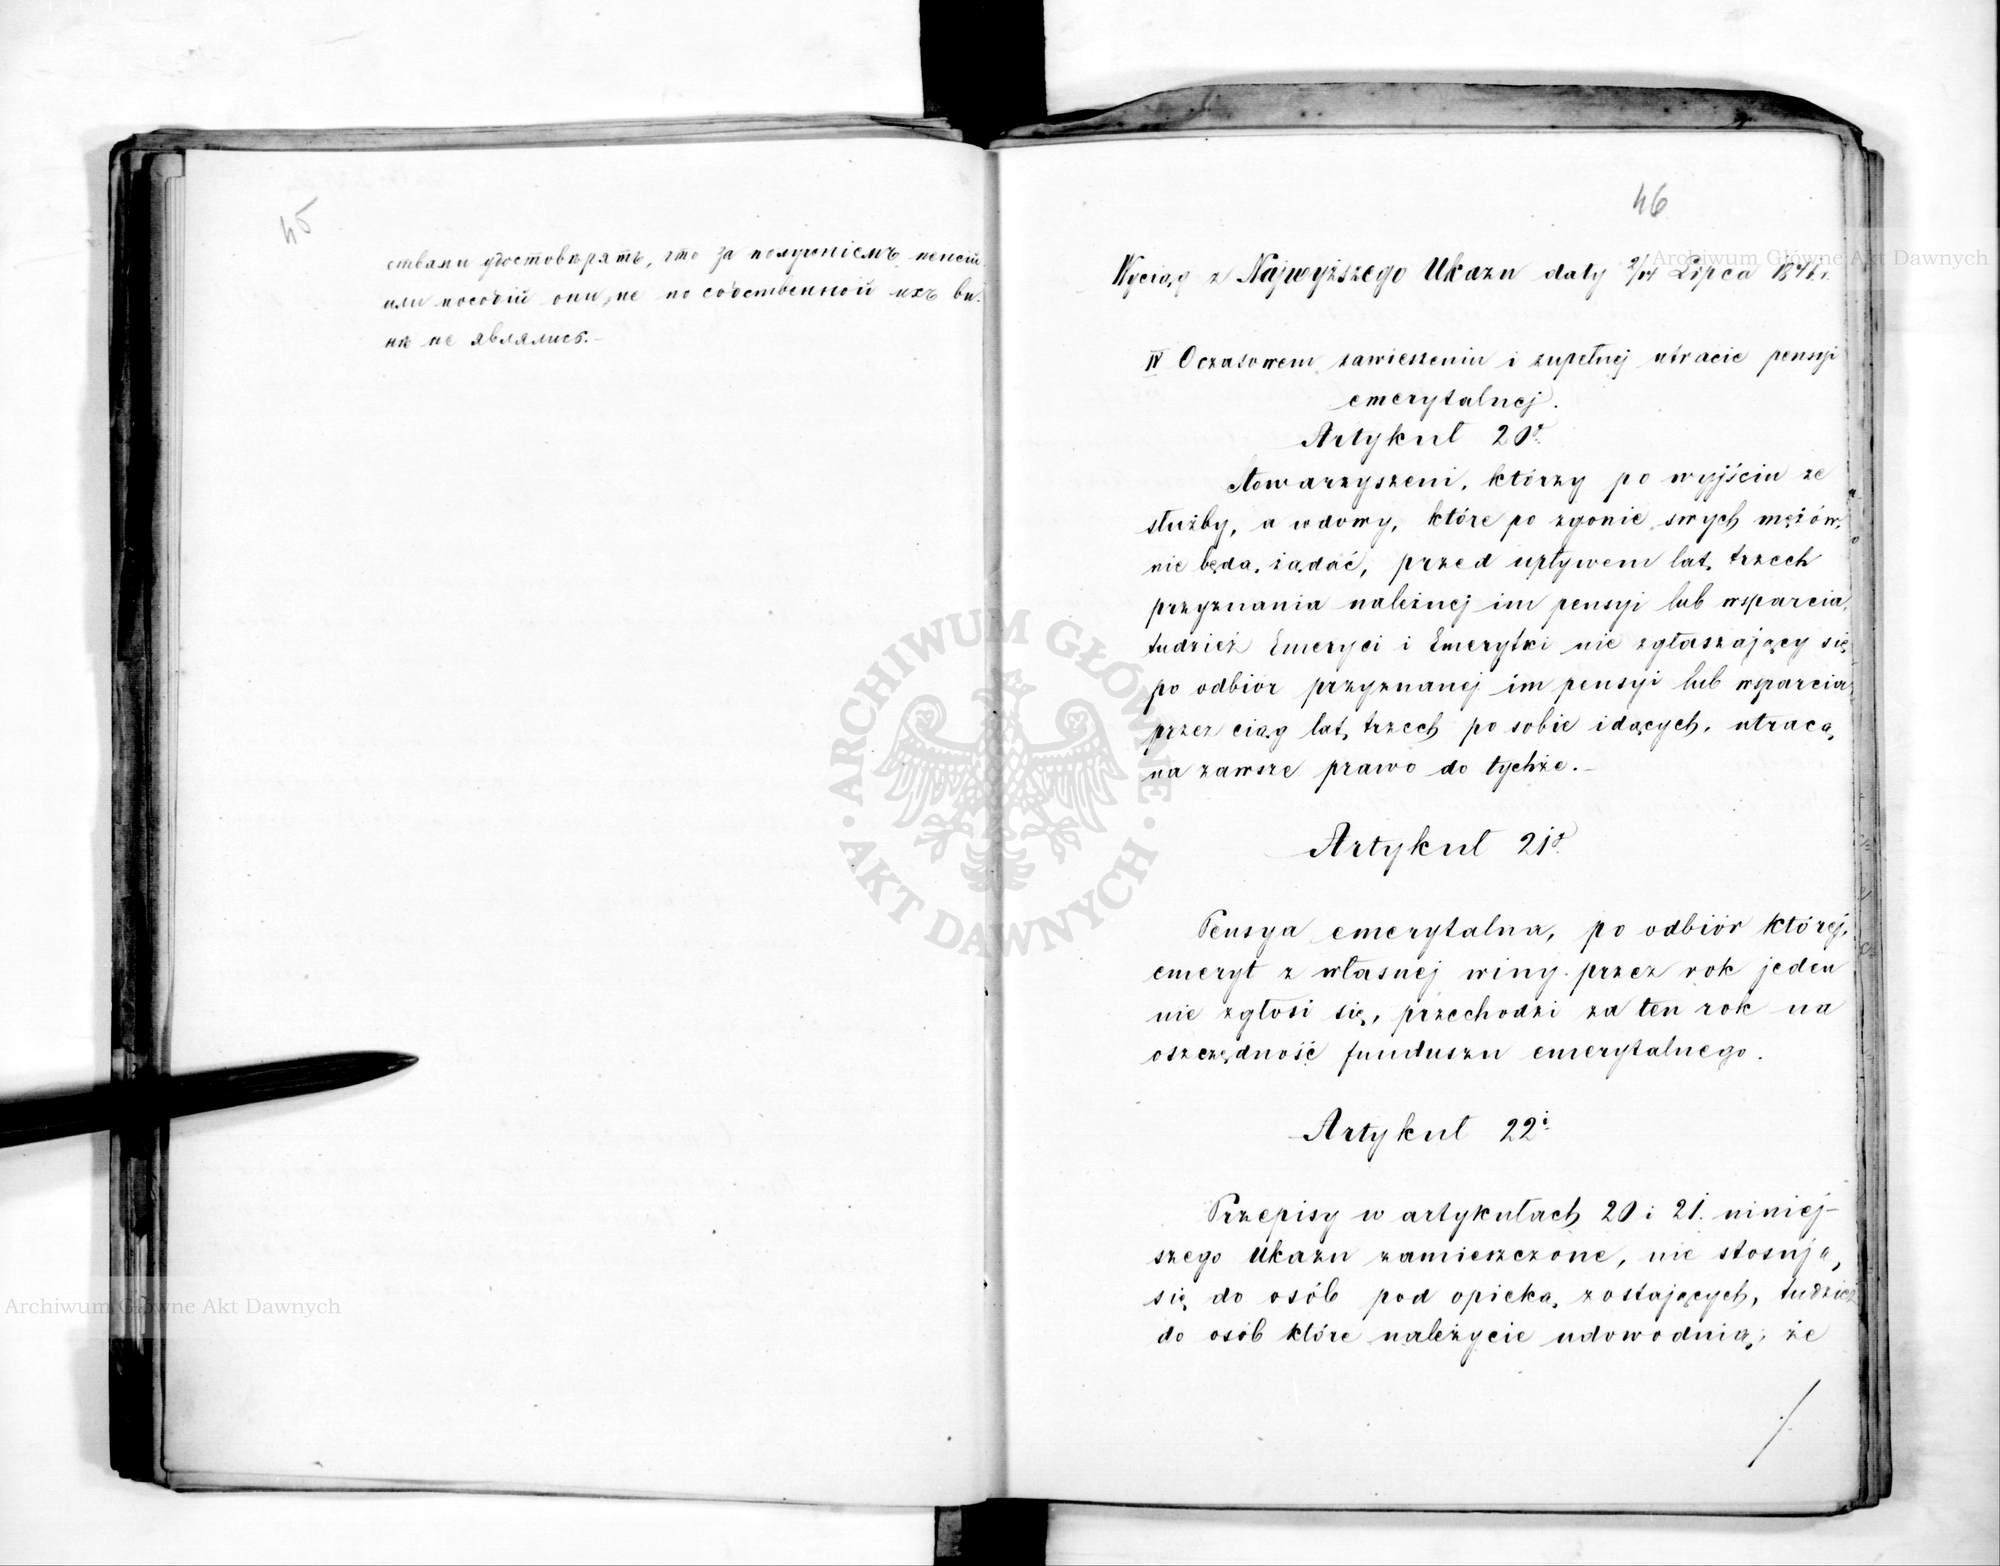 45
ствами удостовѣрятъ, что за полученіемъ пенсій
или пособій они, не по собственной ихъ ви-
нѣ не являлись.
46
Wyciąg z Najwyższego Ukazu daty 2/14 Lipca 1841 r.
IV O czasowem zawieszeniu i zupełnej utracie pensyi
emerytalnej.
Artykuł 20y.
Stowarzyszeni, którzy po wyjściu ze
służby, a wdowy, które po zgonie swych mężów,
nie będą żądać, przed upływem lat trzech
przyznania należnej im pensyi lub wsparcia,
tudzież Emeryci i Emerytki nie zgłaszający się
po odbiór przyznanej im pensyi lub wsparcia
przez ciąg lat trzech po sobie idących, utracą
na zawsze prawo do tychże.
Artykuł 21y.
Pensya emerytalna, po odbiór której,
emeryt z własnej winy przez rok jeden
nie zgłosi się, przechodzi za ten rok na
oszczędność funduszu emerytalnego.
Artykuł 22i.
Przepisy w artykułach 20 i 21. niniej-
szego Ukazu zamieszczone, nie stosują
się do osób pod opieką zostających, tudzież
do osób które należycie udowodnią, że
./.
Archiwum Główne Akt Dawnych
ARCHIWUM GŁÓWNE · AKT DAWNYCH ·
Archiwum Główne Akt Dawnych